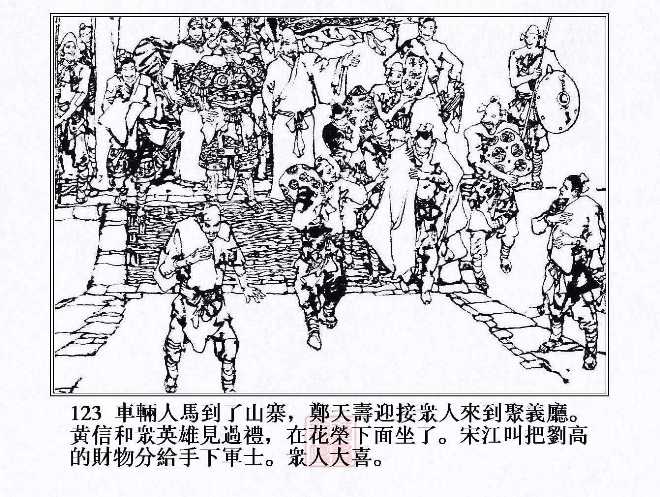 123 車輛人馬到了山寨，鄭天壽迎接眾人來到聚義廳。
黃信和眾英雄見過禮，在花榮下面坐了。宋江叫把劉高
的財物分給手下軍士。眾人大喜。